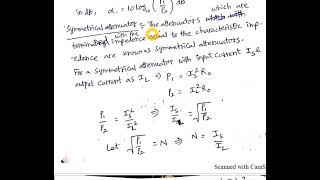 in dB, α = 10 log₁₀ (P₁/P₂) dB
Symmetrical attenuator :- The attenuators which are
terminated with the impedence equal to the characteristic imp-
edence are known as symmetrical attenuators.
For a symmetrical attenuator with input current Is &
output current as IL ⇒ P₁ = Is² R₀
P₂ = IL² R₀
P₁/P₂ = Is²/IL² ⇒ Is/IL = √(P₁/P₂)
Let √(P₁/P₂) = N ⇒ N = Is/IL
Scanned with CamS